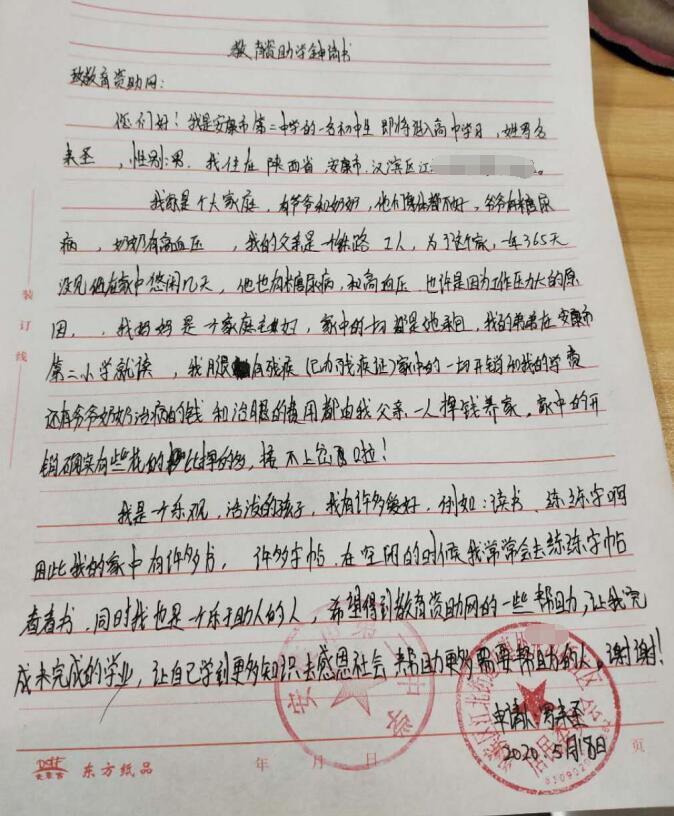 教育资助学金申请书
致教育资助网：
您们好！我是安康市第二中学的一名初中生 即将进入高中学习，姓罗名
来圣，性别：男。我住在陕西省安康市汉滨区江
我家是个大家庭，有爷爷和奶奶，他们身体都不好，爷爷有糖尿
病，奶奶有高血压，我的父亲是一个铁路工人，为了这个家，一年365天
没见他在家中悠闲几天，他也有糖尿病，和高血压 也许是因为工作压力大的原
因，我妈妈是一个家庭主妇，家中的一切都是她 我的弟弟在安康市
第二小学就读，我腿有残疾（已办残疾证）家中的一切开销和我的学费
还有爷爷奶奶治病的钱和治腿的费用都由我父亲一人挣钱养家，家中的开
销确实有些花的比挣的多，接不上啦！
我是个乐观，活泼的孩子，我有许多爱好，例如：读书、练练字啊
因此我的家中有许多书，许多字帖，在空闲的时候我常常会去练练字帖
看看书，同时我也是个乐于助人的人，希望得到教育资助网的一些帮助，让我完
成未完成的学业，让自己学到更多知识去感恩社会 帮助更多需要帮助的人。谢谢！
申请人：罗来圣
2020.5月18日
年 月 日
页
装订线
东方纸品